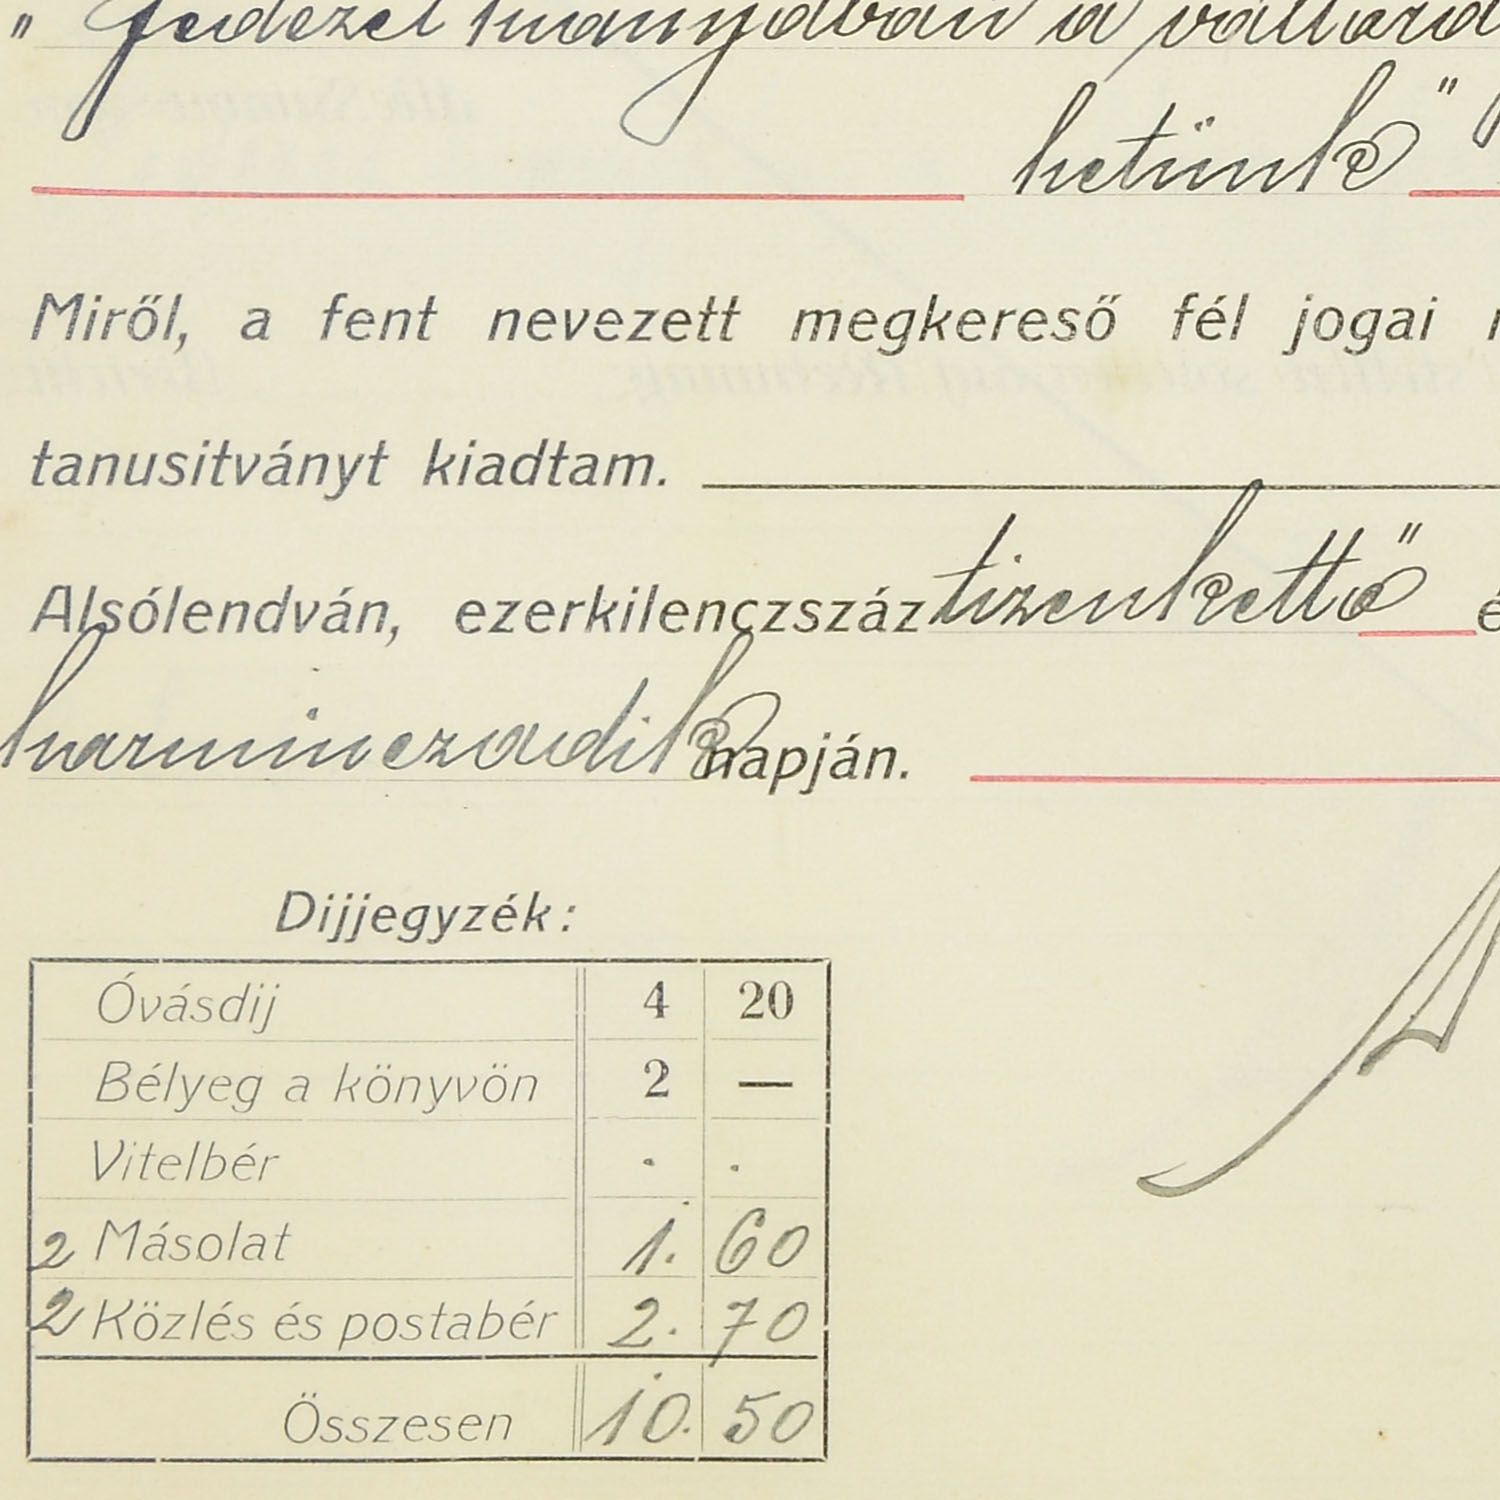 „ fedezet hiányában a váltóról
hetünk"
Miről, a fent nevezett megkereső fél jogai
tanusitványt kiadtam.
Alsólendván, ezerkilenczszáz tizenkettő
harminczadik napján.
Dijjegyzék:
Óvásdij 4 20
Bélyeg a könyvön 2 —
Vitelbér . .
2 Másolat 1. 60
2 Közlés és postabér 2. 70
Összesen 10. 50